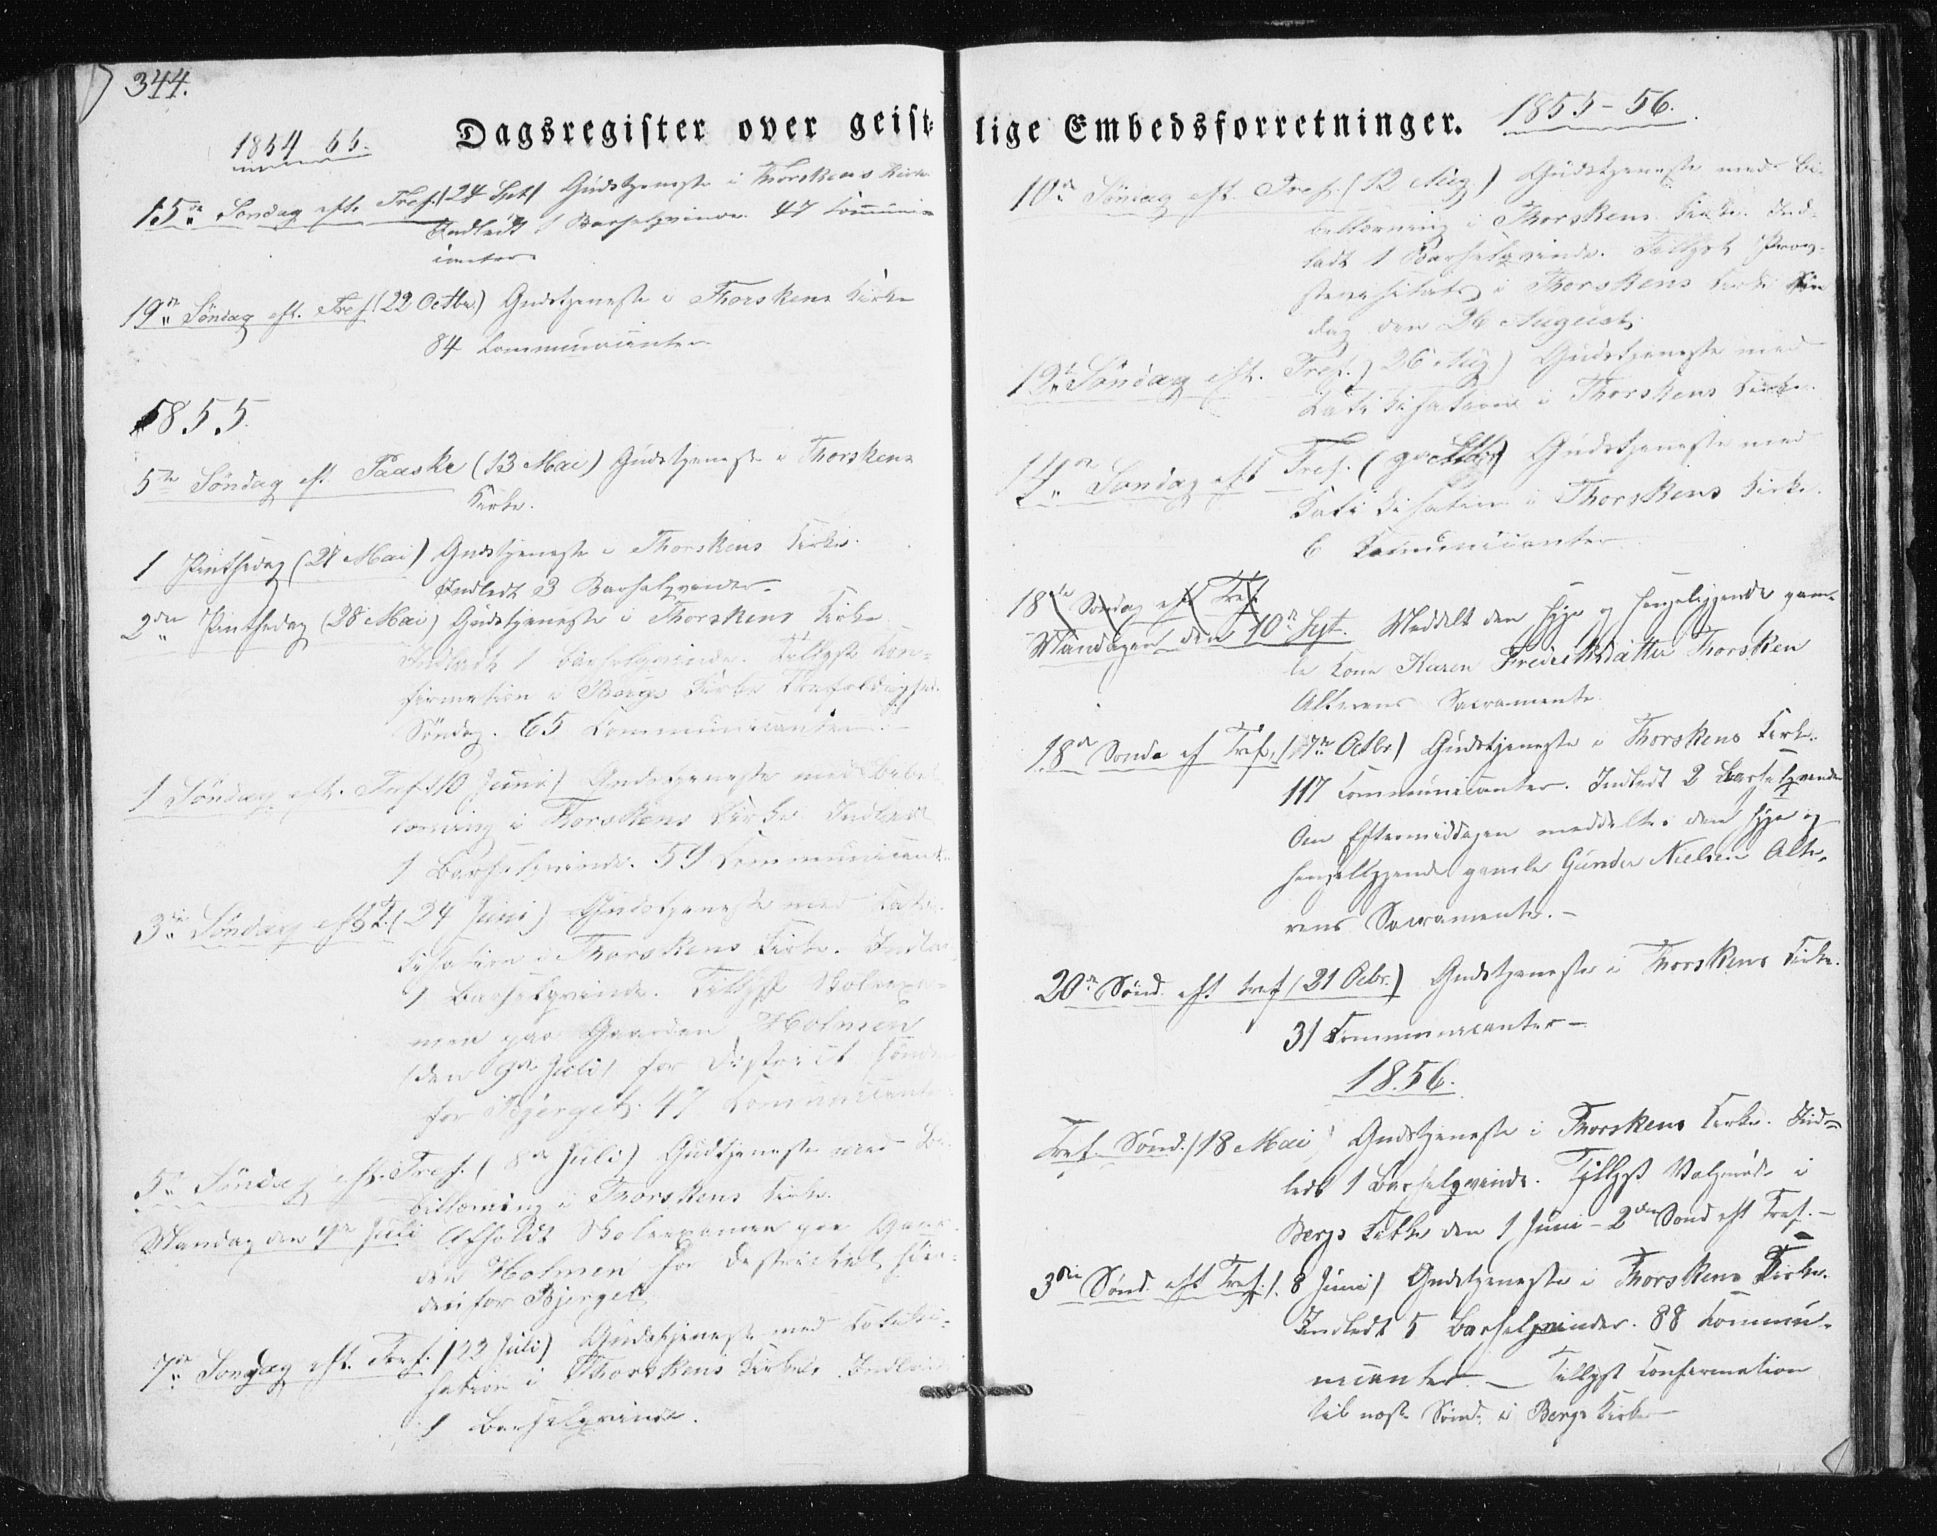 344.
Dagsregister over geist-
1854-55.
15de Søndag eft. Tref. (24 Spt) Gudstjeneste i Thorskens Kirke
Indledt 1 Barselqvinde. 47 Communi-
canter
19de Søndag eft. Tref. (22 Octbr) Gudstjeneste i Thorskens Kirke
84 Communicanter
1855.
5te Søndag eft Paaske (13 Mai) Gudstjeneste i Thorskens
Kirke.
1 Pintsedag (27 Mai) Gudstjeneste i Thorskens Kirke.
Indledt 3 Barselqvinder.
2den Pintsedag (28 Mai) Gudstjeneste i Thorskens Kirke
Indledt 1 Barselqvinde. Tillyst Con-
firmation i Bergs Kirke Trefoldigheds
Søndag. 65 Communicanter.
1 Søndag eft. Tref. (10 Juni) Gudstjeneste med Bibel
læsning i Thorskens Kirke Indledt
1 Barselqvinde. 59 Communicant.
3die Søndag eft T. (24 Juni) Gudstjeneste med Cate-
kisation i Thorskens Kirke. Indle
1 Barselqvinde. Tillyst Skoleexa-
men paa Gaarden Holmen
(den 9de Juli) for District sønden-
for Bjerget. 47 Communicante
5te Søndag eft. Tref. (8de Juli) Gudtjeneste med Bi-
bellæsning i Thorskens Kirke.
Mandag den 9de Juli Afholdt Skoleexamen paa Gaar-
den Holmen for Destrictet søn-
denfor Bjerget
7de Søndag eft. Tref. (22 Juli) Gudstjeneste med Cateki-
sation i Thorskens Kirke. Indledt
1 Barselqvinde.
lige Embedsforretninger.
1855-56.
10de Søndag eft. Tref. (12 Aug) Gudstjeneste med Bi-
bellæsning i Thorskens Kirke. Ind-
ledt 1 Barselqvinde. Tillyst Prov-
stevisitats i Thorskens Kirke Søn
dag den 26 August.
12te Søndag eft. Tref. (26 Aug) Gudstjeneste med
Katekisation i Thorskens Kirke.
14de Søndag eft Tref. (9de Sptbr) Gudstjeneste med
Katekisation i Thorskens Kirke.
6 Communicanter
18de Søndag eft Tref.
Mandagen den 10de Sept. Meddelt den syge og sengeliggende gam-
le Kone Karen Fredriksdatter Thorsken
Alterens Sacramente.
18de Sønda ef Tref. (7de Octbr) Gudstjeneste i Thorskens Kirke.
117 Communicanter. Indledt 2 Barselqvinder
Om Eftermiddagen meddelt den syge og
sengeliggende gamle Gunder Nielsen Alte-
rens Sacramente.-
20de Sønd. eft tref (21 Ocbr.) Gudstjeneste i Thorskens Kirke.
31 Communicanter-
1856.
Tref. Sønd. (18 Mai) Gudstjeneste i Thorskens Kirke. Ind-
ledt 1 Barselqvinde. Tillyst Valgmøde i
Bergs Kirke den 1 Juni-2den Sønd eft Tref.-
3die Sønd. eft Tref. (8 Juni) Gudstjeneste i Thorskens Kirke.
Indledt 5 Barselqvinder. 88 Commu-
nicanter.- Tillyst Confirmation
til næste Sønd. i Bergs Kirke-